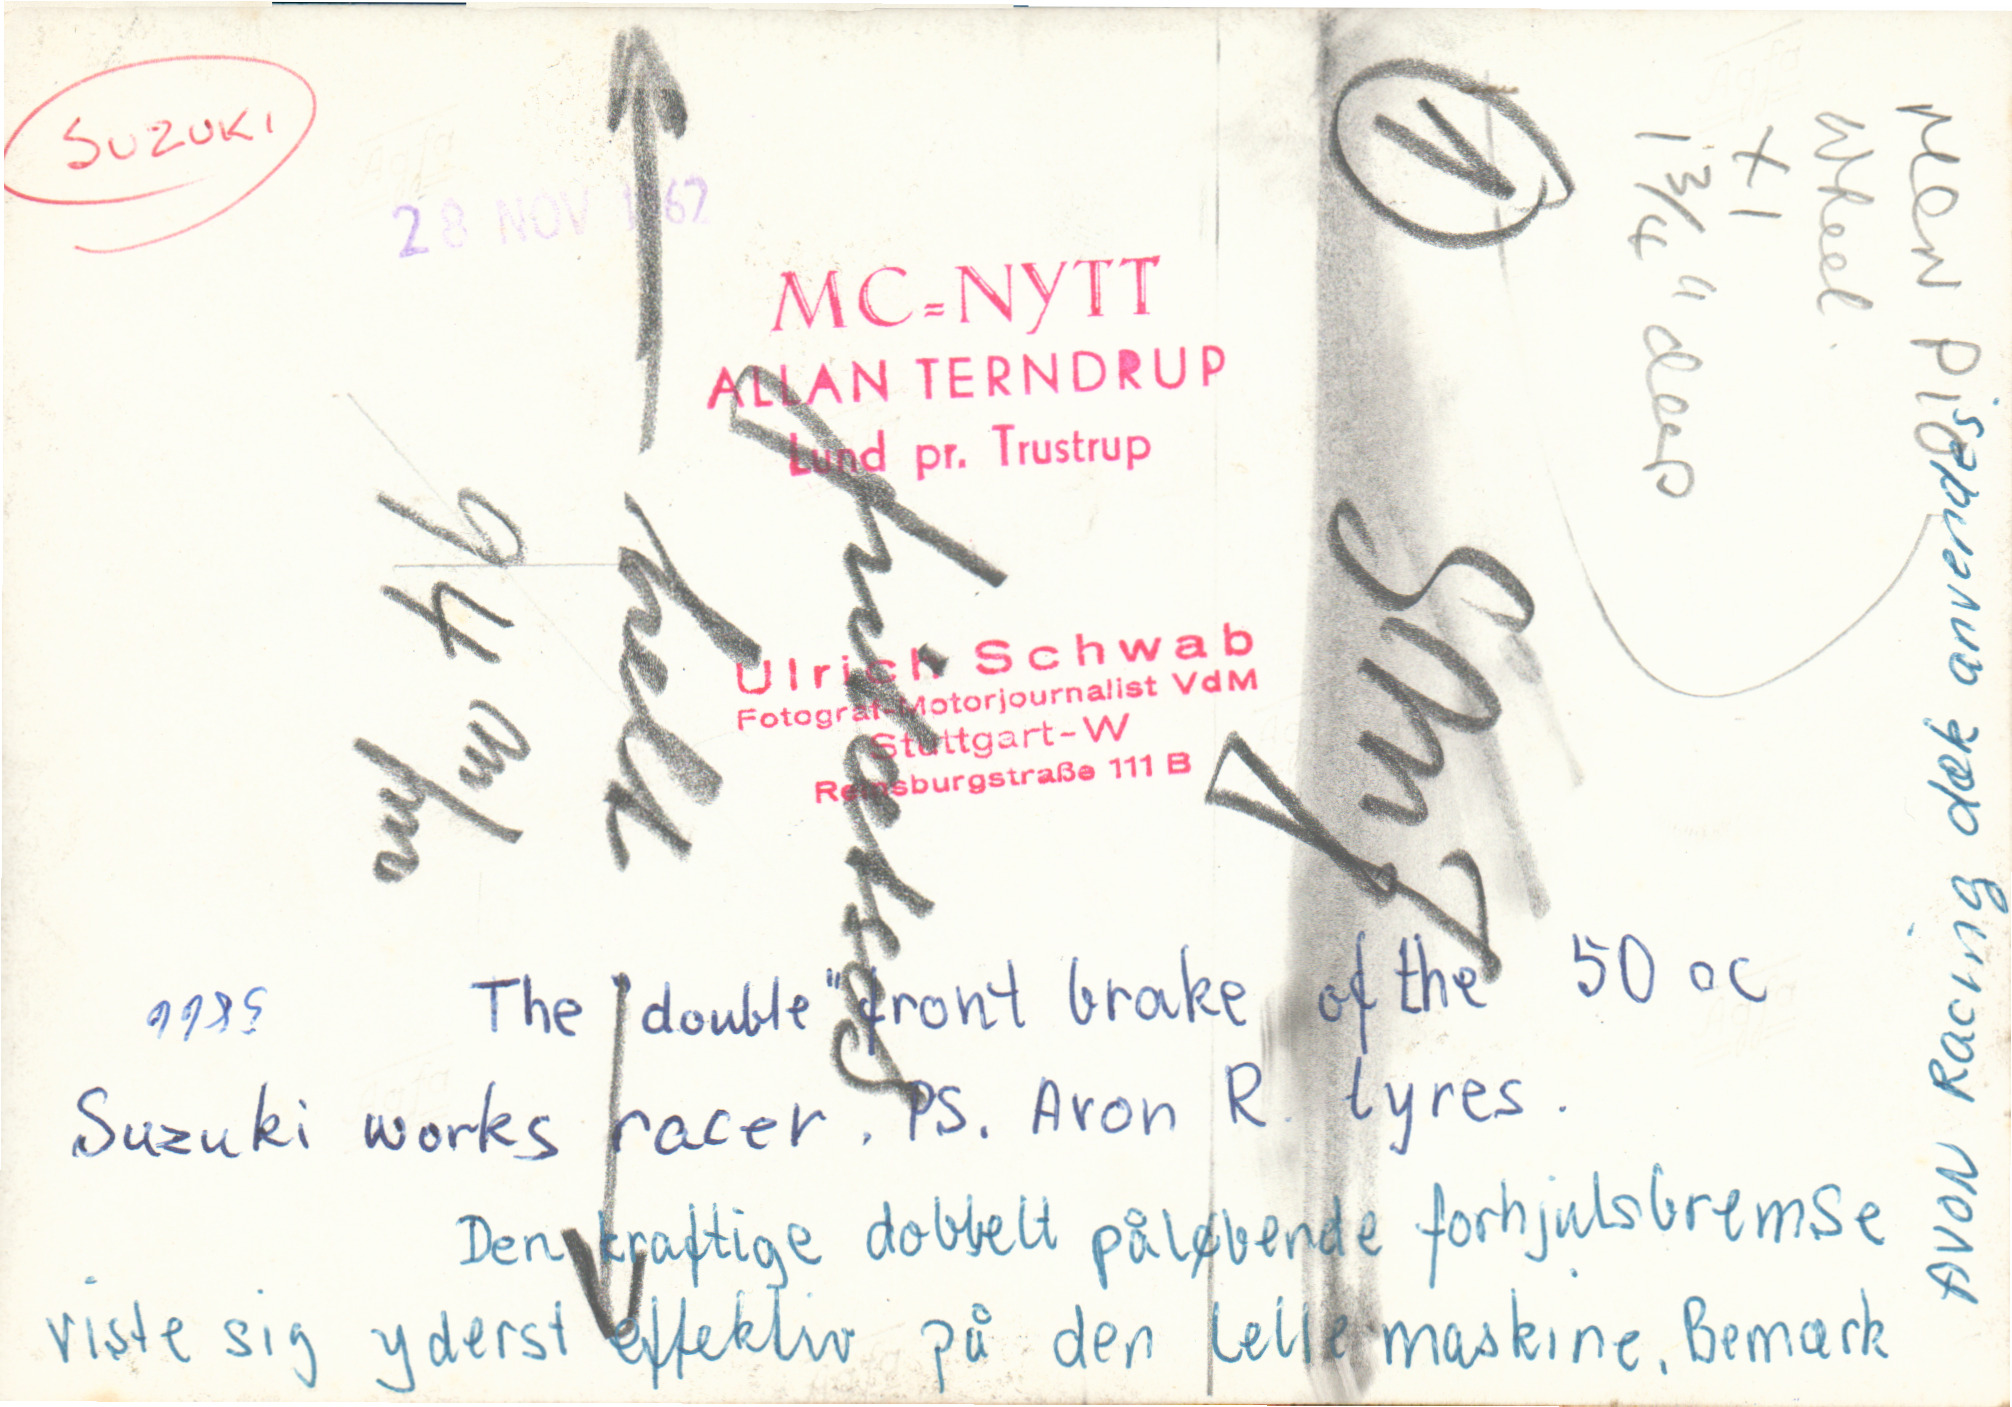 SUZUKI
28 NOV 1962
MC=NYTT
ALLAN TERNDRUP
Lund pr. Trustrup
Ulrich Schwab
Fotograf-Motorjournalist VdM
Stuttgart-W
Reinsburgstraße 111 B
1
MCN PIX
Wheel.
X1
1 3/4" deep
94 m/m
The "double" front brake of the 50 cc
Suzuki works racer. PS. Avon R. tyres.
Den kraftige dobbelt påløbende forhjulsbremse
viste sig yderst effektiv på den lelle maskine. Bemærk
AVON Racing dæk anvendes